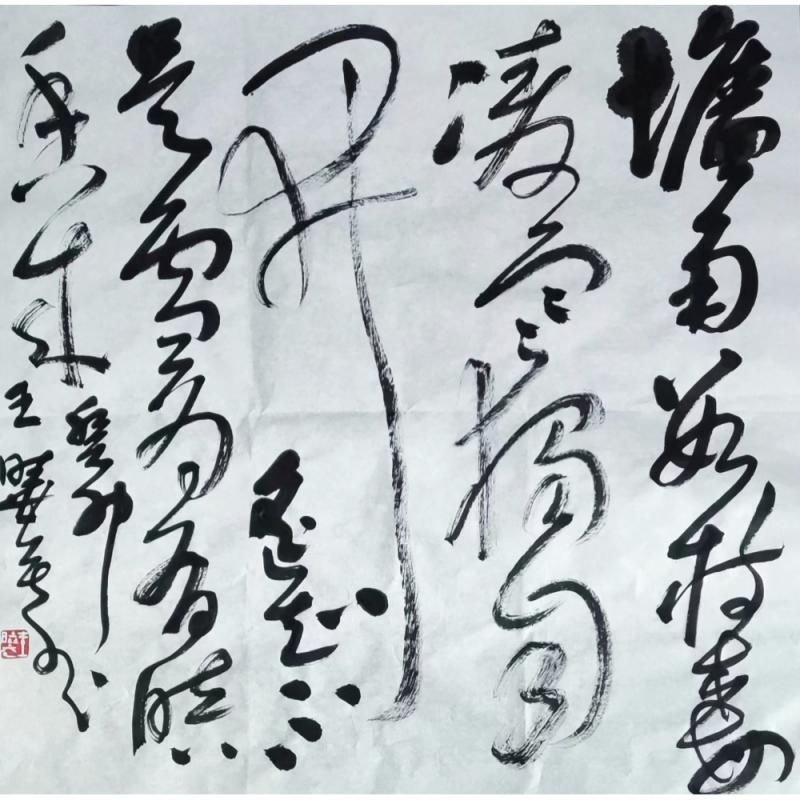 墙角数枝梅
凌寒独自
开
遥知不
是雪为有暗
香来
癸卯
王
书